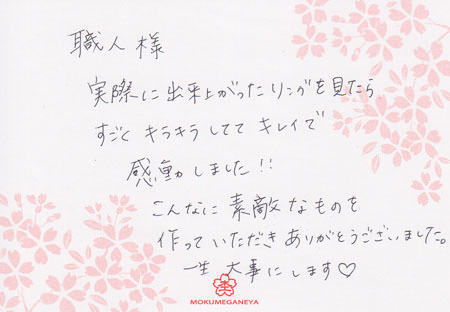 職人様
実際に出来上がったリングを見たら
すごく キラキラしてて キレイで
感動しました!!
こんなに 素敵なものを
作って いただき ありがとうございました。
一生 大事に します♡
MOKUMEGANEYA